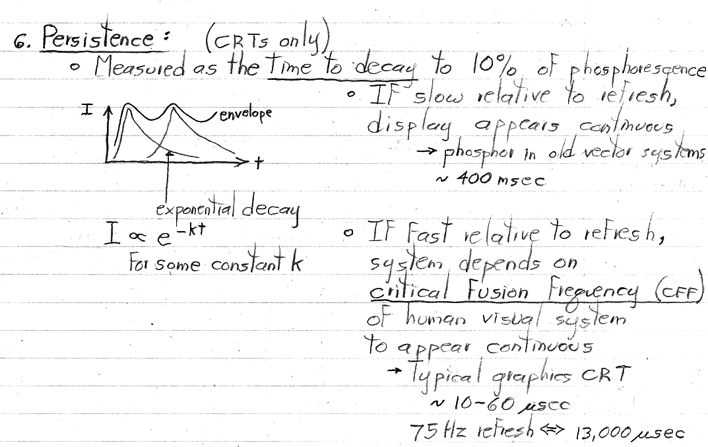 6. Persistence: (CRTs only)
o Measured as the Time to decay to 10% of phosphorescence
I
envelope
t
exponential decay
I ∝ e^-kt
For some constant k
o IF slow relative to refresh,
display appears continuous
→ phosphor in old vector systems
~ 400 msec
o IF Fast relative to refresh,
system depends on
critical Fusion Frequency (CFF)
of human visual system
to appear continuous
→ Typical graphics CRT
~ 10-60 μsec
75 Hz refresh ⇔ 13,000 μsec